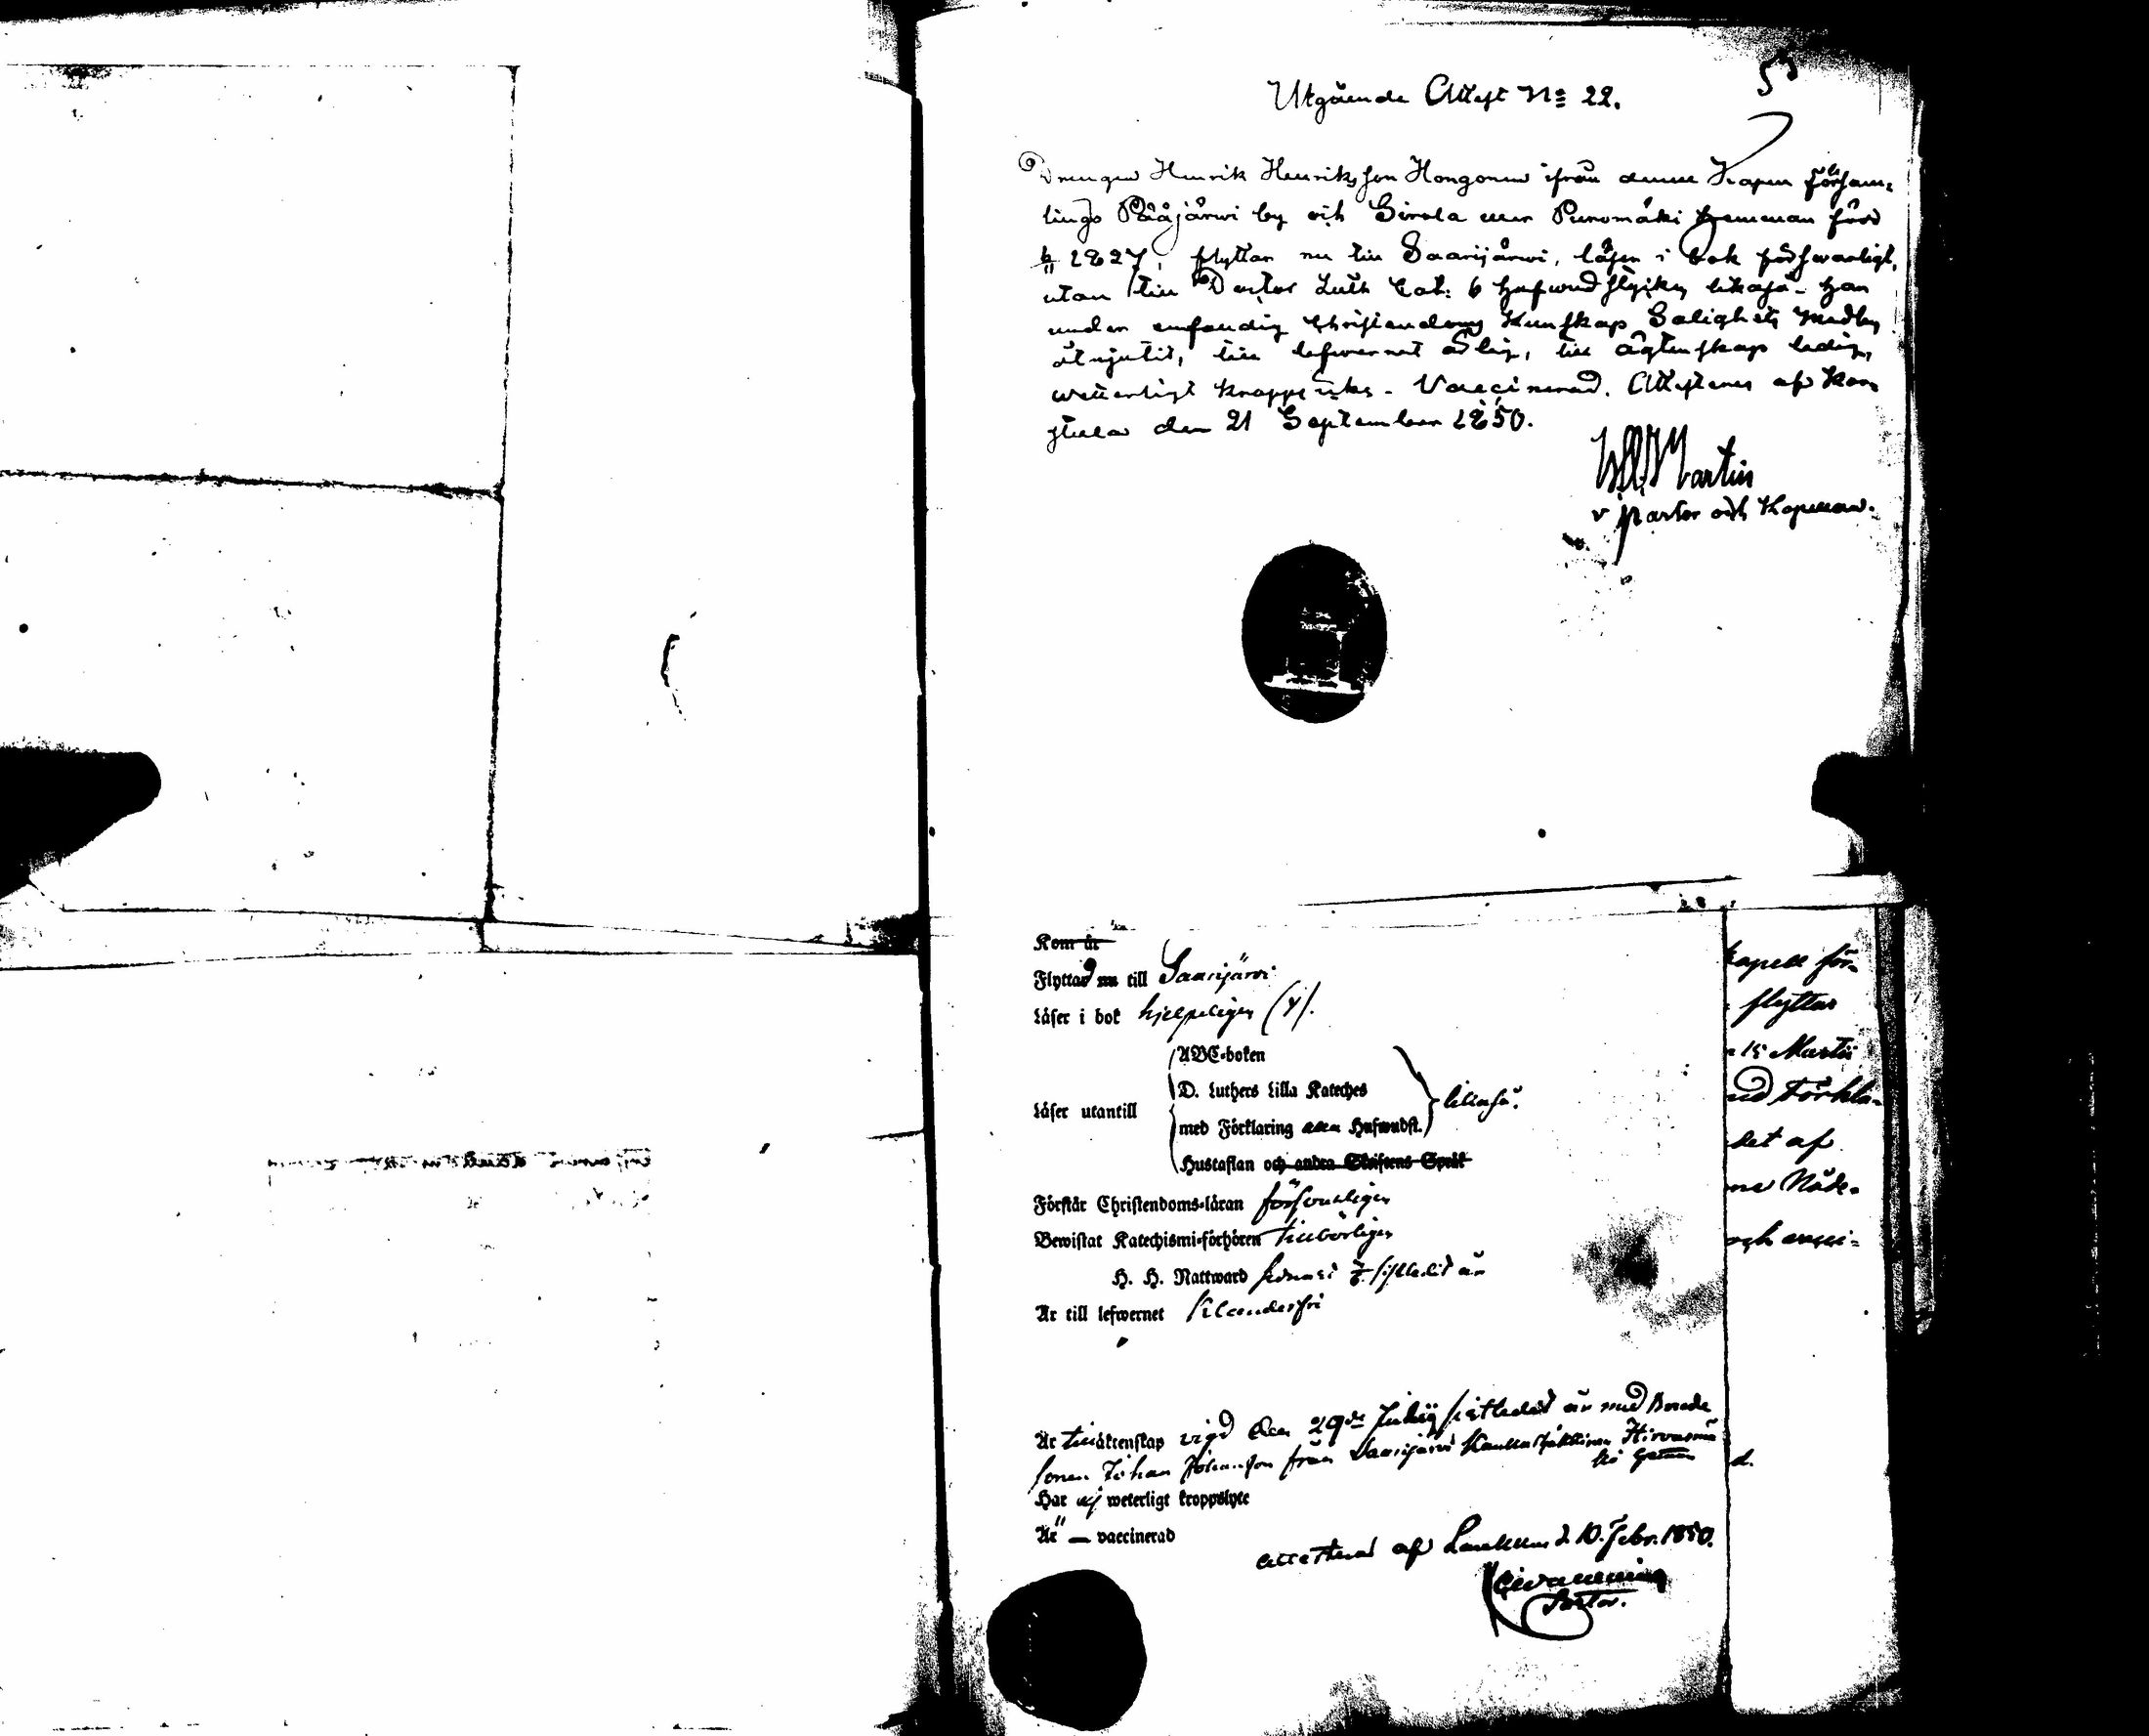 53
Utgående Attest No 22.
Drengen Henrik Henriksson Hongonen ifrån denne Kapell församl
lings Pääjärwi by och Sirola eller Puromäki hemman född
6/11 1827, flyttar nu till Saarijärwi, läser i bok förswarligt,
utan till Doctor Luth Cat: 6 hufwudstycken likaså - han
under enfaldig Christendoms Kunskap Salighets medlen
åtnjutit, till lefwernet ärlig, till ägtenskap ledig,
wetterligt kroppslyte - Vaccinerad. Attesteras af Kar-
stula den 21 September 1850.
Martin
v Pastor och Kapellan.
Kom år
Flyttad nu till Saarijärvi
Läser i bok hjelpeligen (4).
Läser utantill
ABC-boken
D. Luthers Lilla Kateches
med Förklaring Hufwudst.
likaså.
Hustaflan och andra Skriftens Språk
Förstår Christendoms-läran försvarligen
Bewistat Katechismi-förhören tillbörligen
H. H. Nattward sistledit år
Är till lefwernet klanderfri
Är till äktenskap vigd den 29de sistledit år med Bonde
sonen Johan Johansson från Saarijärvi
Har ej weterligt kroppslyte
Är — vaccinerad
attesterad af Laukkas d. 10. Febr. 1850.
Pastor.
kapell för-
flyttar
15 Martii
Förkla-
det af
Nåde-
och
d.